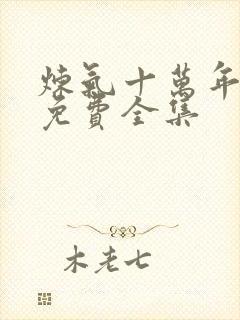 煉氣十萬年
免費全集
木老七